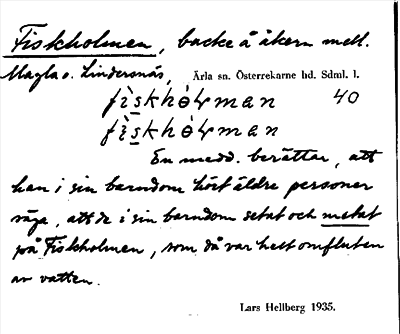 Fiskholmen, backe å åkern mell.
Magla o. Lindersnäs, Ärla sn. Österrekarne hd. Sdml. l.
fìskhòɫman 40
fìskhòɫman
En medd. berättar, att
han i sin barndom hört äldre personer
säga, att de i sin barndom setat och metat
på Fiskholmen, som då var helt omfluten
av vatten.
Lars Hellberg 1935.